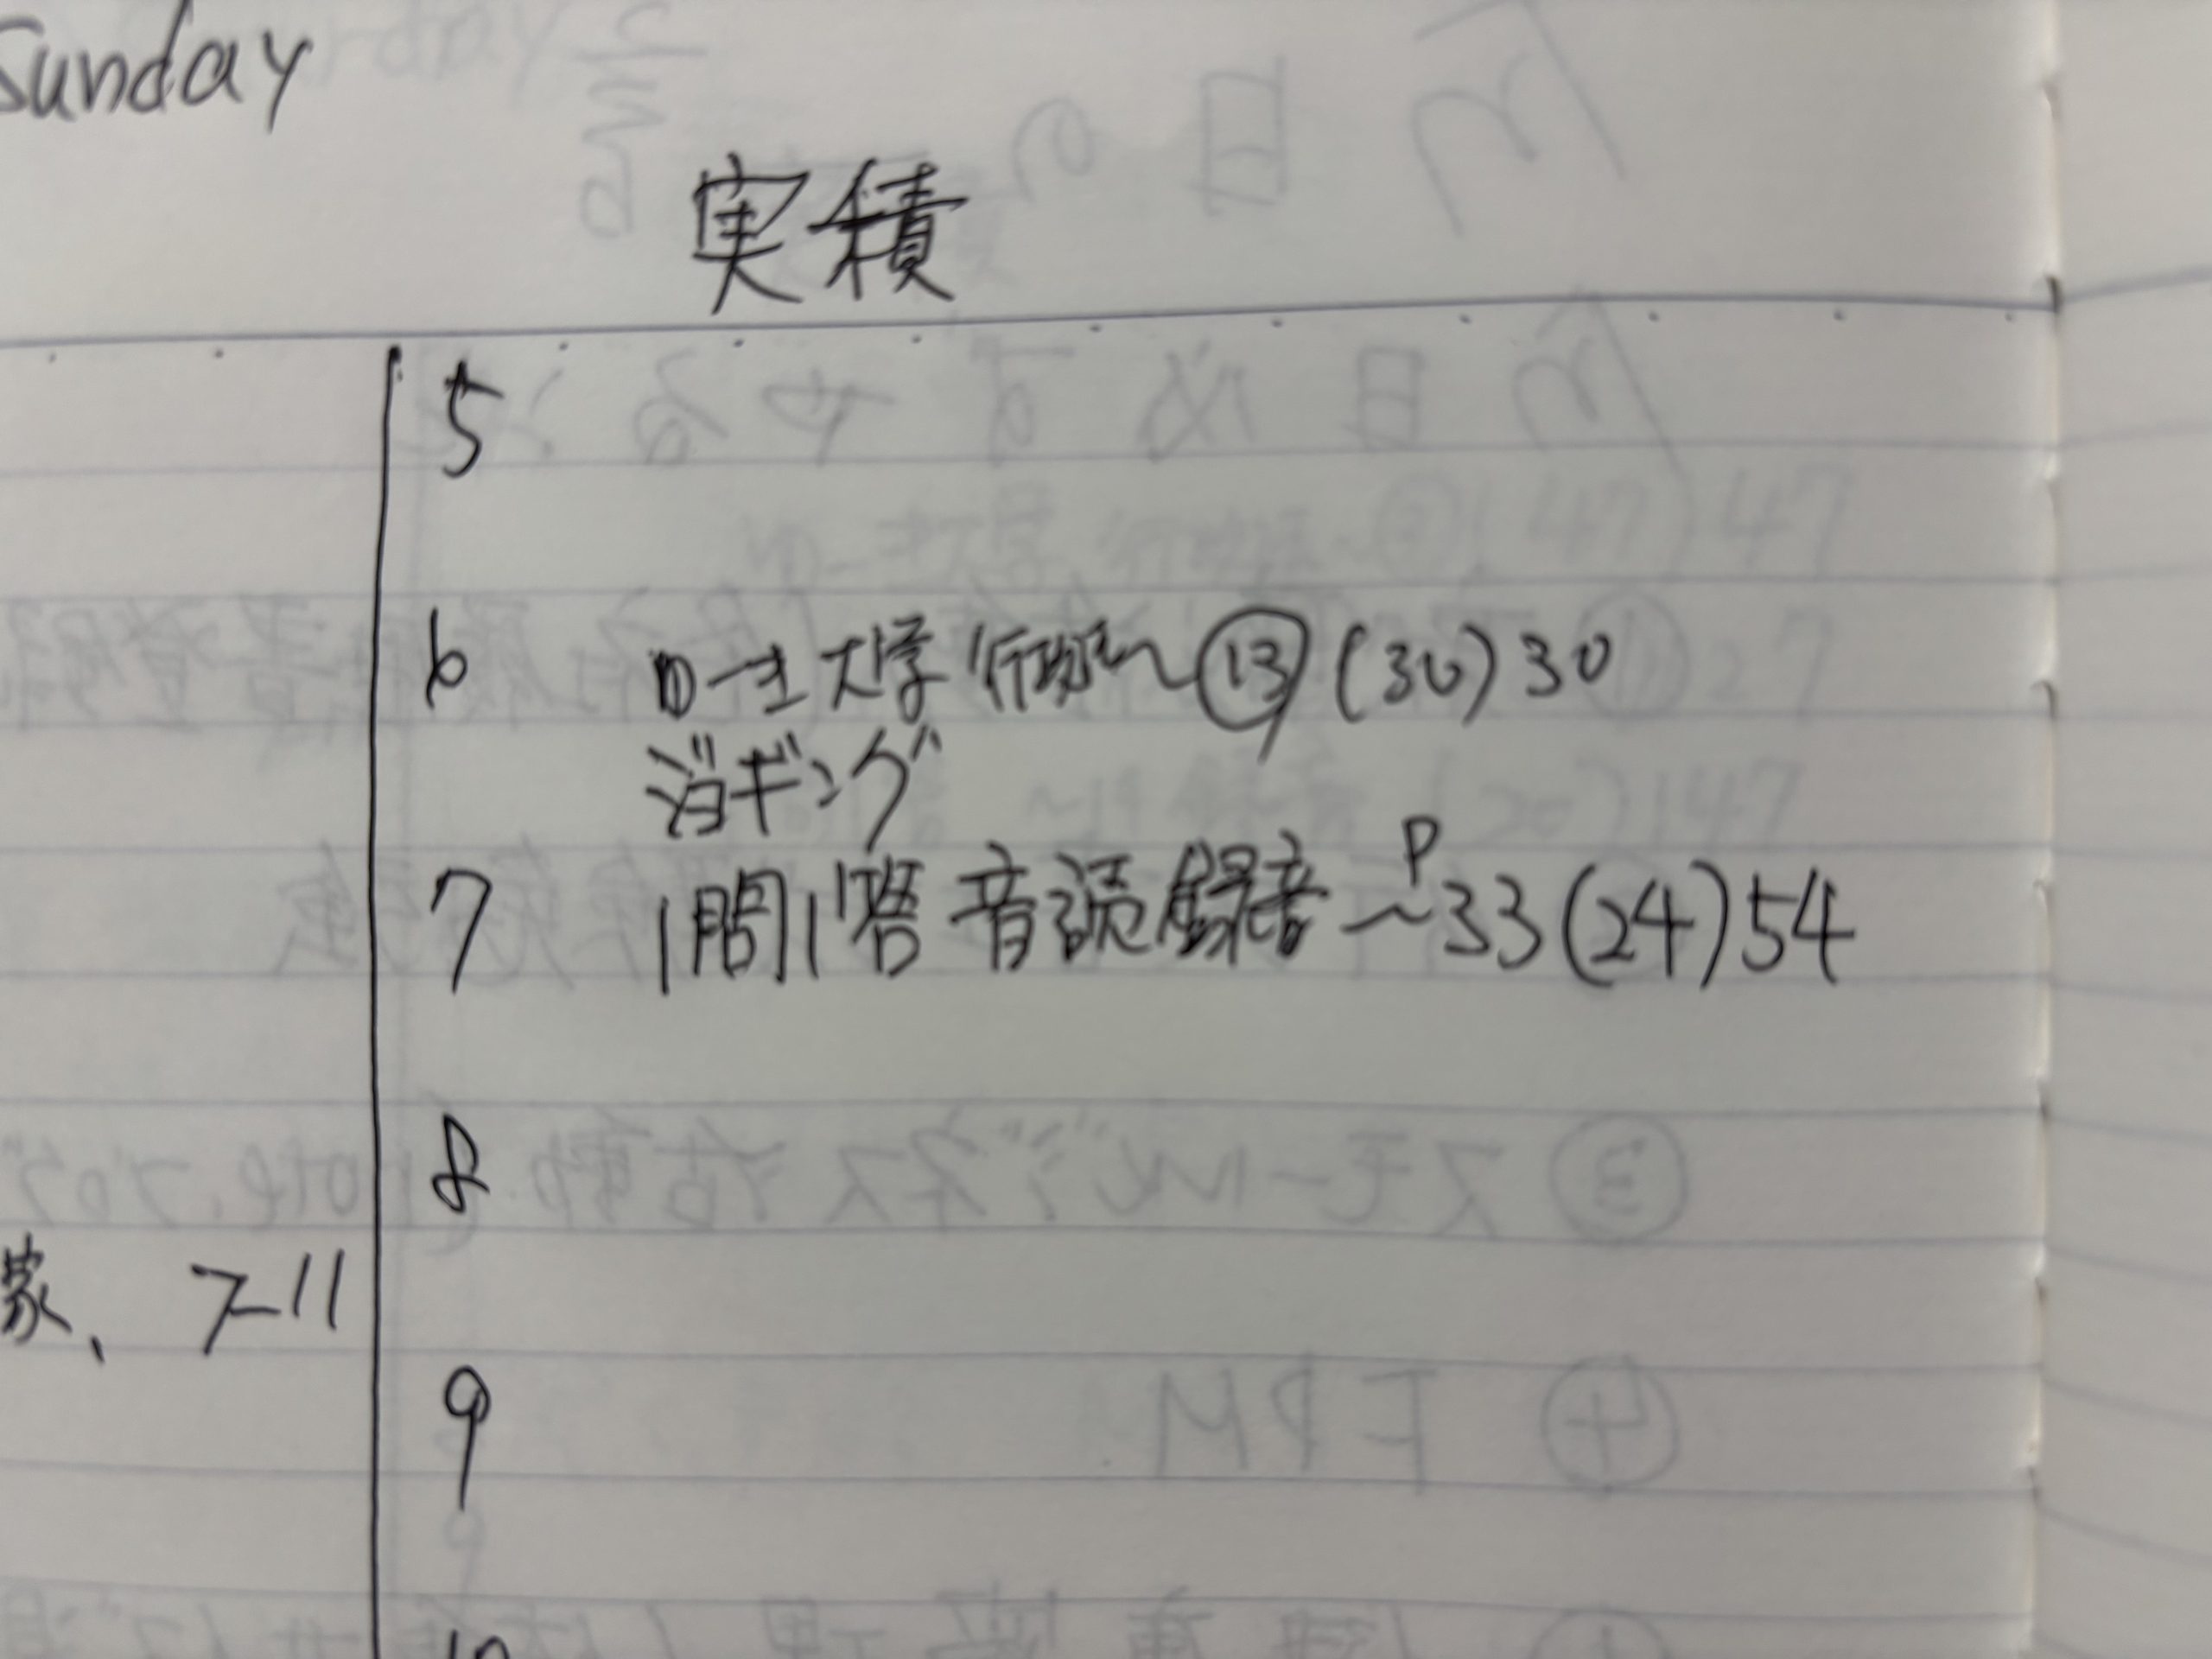 Sunday
実積
5
6 ゆーき大学 行政～⑬(30)30
ジョギング
7 1問1答 音読 録音～P33(24)54
8
家、7-11
9
10